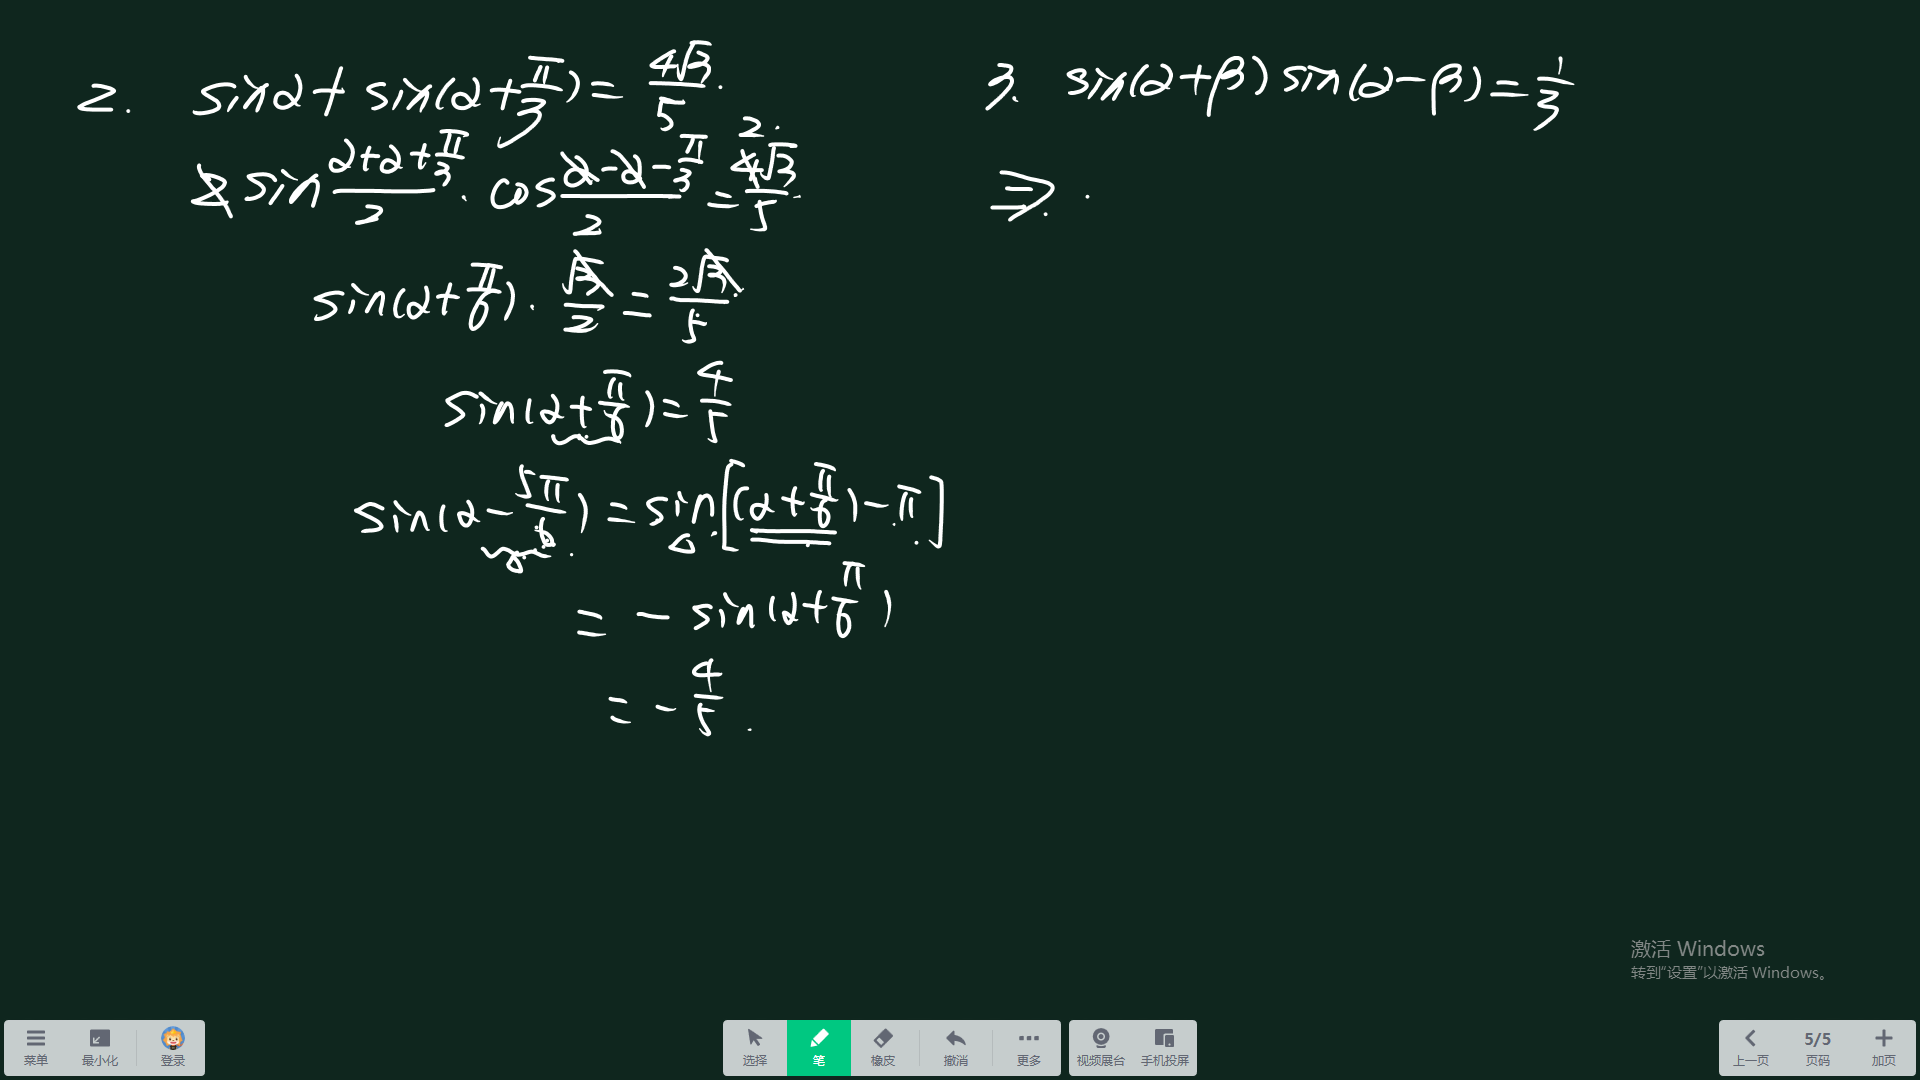 2. sinα + sin(α + π/3) = 4√3/5.
2 sin (α+α+π/3)/2 · cos (α-α-π/3)/2 = 4√3/5 2.
sin(α + π/6) · √3/2 = 2√3/5
sin(α + π/6) = 4/5
sin(α - 5π/6) = sin[(α + π/6) - π]
= - sin(α + π/6)
= - 4/5.
3. sin(α+β) sin(α-β) = 1/3
⇒
激活 Windows
转到“设置”以激活 Windows。
菜单 最小化 登录 选择 笔 橡皮 撤消 更多 视频展台 手机投屏 上一页 5/5 页码 加页